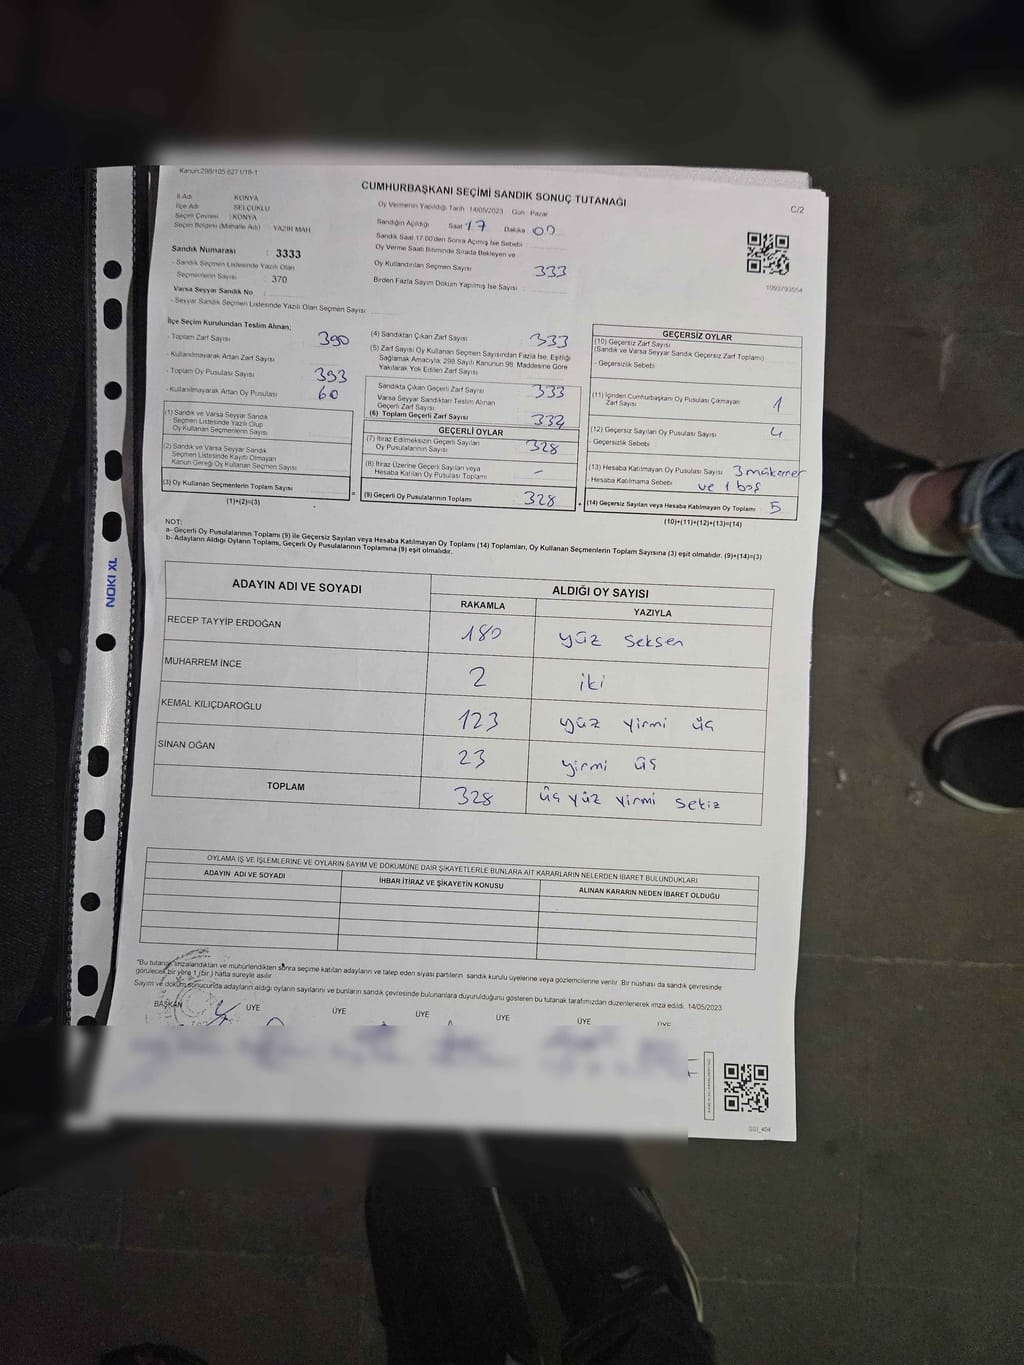 Kanun:298/105.627 1/18-1
CUMHURBAŞKANI SEÇİMİ SANDIK SONUÇ TUTANAĞI
C/2
İl Adı : KONYA
İlçe Adı : SELÇUKLU
Seçim Çevresi : KONYA
Seçim Bölgesi (Mahalle Adı) : YAZIR MAH.
Oy Vermenin Yapıldığı Tarih : 14/05/2023 Gün : Pazar
Sandığın Açıldığı Saat 17 Dakika 00
Sandık Saat 17.00'den Sonra Açılmış İse Sebebi :
Oy Verme Saati Bitiminde Sırada Bekleyen ve
Oy Kullandırılan Seçmen Sayısı 333
Birden Fazla Sayım Döküm Yapılmış İse Sayısı :
1093793554
Sandık Numarası : 3333
- Sandık Seçmen Listesinde Yazılı Olan
Seçmenlerin Sayısı : 370
Varsa Seyyar Sandık No :
- Seyyar Sandık Seçmen Listesinde Yazılı Olan Seçmen Sayısı :
İlçe Seçim Kurulundan Teslim Alınan;
- Toplam Zarf Sayısı : 390
- Kullanılmayarak Artan Zarf Sayısı :
- Toplam Oy Pusulası Sayısı : 393
- Kullanılmayarak Artan Oy Pusulası : 60
(1) Sandık ve Varsa Seyyar Sandık
Seçmen Listesinde Yazılı Olup
Oy Kullanan Seçmenlerin Sayısı
(2) Sandık ve Varsa Seyyar Sandık
Seçmen Listesinde Kayıtlı Olmayan
Kanun Gereği Oy Kullanan Seçmen Sayısı
(3) Oy Kullanan Seçmenlerin Toplam Sayısı
(1)+(2)=(3)
=
(4) Sandıktan Çıkan Zarf Sayısı : 333
(5) Zarf Sayısı Oy Kullanan Seçmen Sayısından Fazla İse, Eşitliği
Sağlamak Amacıyla, 298 Sayılı Kanunun 98. Maddesine Göre
Yakılarak Yok Edilen Zarf Sayısı
Sandıkta Çıkan Geçerli Zarf Sayısı : 333
Varsa Seyyar Sandıktan Teslim Alınan
Geçerli Zarf Sayısı
(6) Toplam Geçerli Zarf Sayısı
GEÇERLİ OYLAR
(7) İtiraz Edilmeksizin Geçerli Sayılan
Oy Pusulasının Sayısı : 328
(8) İtiraz Üzerine Geçerli Sayılan veya
Hesaba Katılan Oy Pusulası Toplamı : -
(9) Geçerli Oy Pusulalarının Toplamı : 328
+
GEÇERSİZ OYLAR
(10) Geçersiz Zarf Sayısı
(Sandık ve Varsa Seyyar Sandık Geçersiz Zarf Toplamı)
- Geçersizlik Sebebi
(11) İçinden Cumhurbaşkanı Oy Pusulası Çıkmayan
Zarf Sayısı : 1
(12) Geçersiz Sayılan Oy Pusulası Sayısı : 4
- Geçersizlik Sebebi
(13) Hesaba Katılmayan Oy Pusulası Sayısı : 3 mükerrer
- Hesaba Katılmama Sebebi : ve 1 boş
(14) Geçersiz Sayılan veya Hesaba Katılmayan Oy Toplamı : 5
(10)+(11)+(12)+(13)=(14)
NOT:
a- Geçerli Oy Pusulalarının Toplamı (9) ile Geçersiz Sayılan veya Hesaba Katılmayan Oy Toplamı (14) Toplamları, Oy Kullanan Seçmenlerin Toplam Sayısına (3) eşit olmalıdır. (9)+(14)=(3)
b- Adayların Aldığı Oyların Toplamı, Geçerli Oy Pusulalarının Toplamına (9) eşit olmalıdır.
ADAYIN ADI VE SOYADI
ALDIĞI OY SAYISI
RAKAMLA YAZIYLA
RECEP TAYYİP ERDOĞAN 180 yüz seksen
MUHARREM İNCE 2 iki
KEMAL KILIÇDAROĞLU 123 yüz yirmi üç
SİNAN OĞAN 23 yirmi üç
TOPLAM 328 üç yüz yirmi sekiz
OYLAMA İŞ VE İŞLEMLERİNE VE OYLARIN SAYIM VE DÖKÜMÜNE DAİR ŞİKAYETLERLE BUNLARA AİT KARARLARIN NELERDEN İBARET BULUNDUKLARI
ADAYIN ADI VE SOYADI İHBAR İTİRAZ VE ŞİKAYETİN KONUSU ALINAN KARARIN NEDEN İBARET OLDUĞU
"Bu tutanağı imzalandıktan ve mühürlendikten sonra seçime katılan adayların ve talep eden siyasi partilerin sandık kurulu üyelerine veya gözlemcilerine verilir. Bir nüshası da sandık çevresinde
görülecek bir yere 1 (bir) hafta süreyle asılır.
Sayım ve döküm sonucunda adayların aldığı oyların sayılarını ve bunların sandık çevresinde bulunanlara duyurulduğunu gösteren bu tutanak tarafımızdan düzenlenerek imza edildi. 14/05/2023
BAŞKAN ÜYE ÜYE ÜYE ÜYE ÜYE ÜYE
NOKI XL